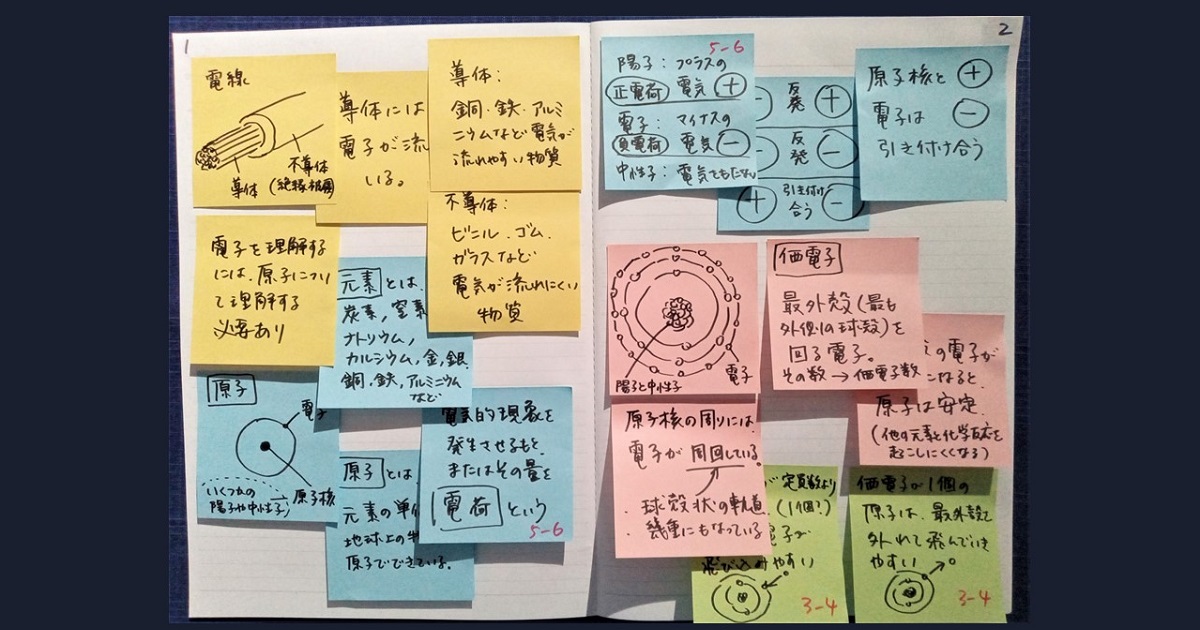 1
電線
不導体
(絶縁
導体
導体には
電子が流
いる。
導体:
銅・鉄・アルミ
ニウムなど電気が
流れやすい物質
不導体:
ビニル、ゴム、
ガラスなど
電気が流れにくい
物質
電子を理解する
には、原子につい
て理解する
必要あり
元素とは、
炭素,窒素
ナトリウム,
カルシウム,金,銀
銅,鉄,アルミニウム
など
原子
電子
いくつかの
陽子や中性子
原子核
原子とは
元素の単
地球上の
原子でできている。
電気的現象を
発生させるもと、
またはその量を
電荷という
5-6
2
5-6
陽子:プラスの
正電荷 電気 +
電子:マイナスの
負電荷 電気 −
中性子:電気をもたない
反発 +
反発 −
+ 引き付け合う −
原子核と +
電子は −
引き付け合う
陽子と中性子
電子
価電子
最外殻(最も
外側の球殻)を
回る電子。
その数→価電子数
の電子が
になると、
原子は安定
(他の元素と化学反応を
起こしにくくなる)
原子核の周りには、
電子が周回している。
球殻状の軌道
幾重にもなっている
が定員数より
(1個?)
電子が
飛び込みやすい
3-4
価電子が1個の
原子は、最外殻で
外れて飛んでいき
やすい
3-4